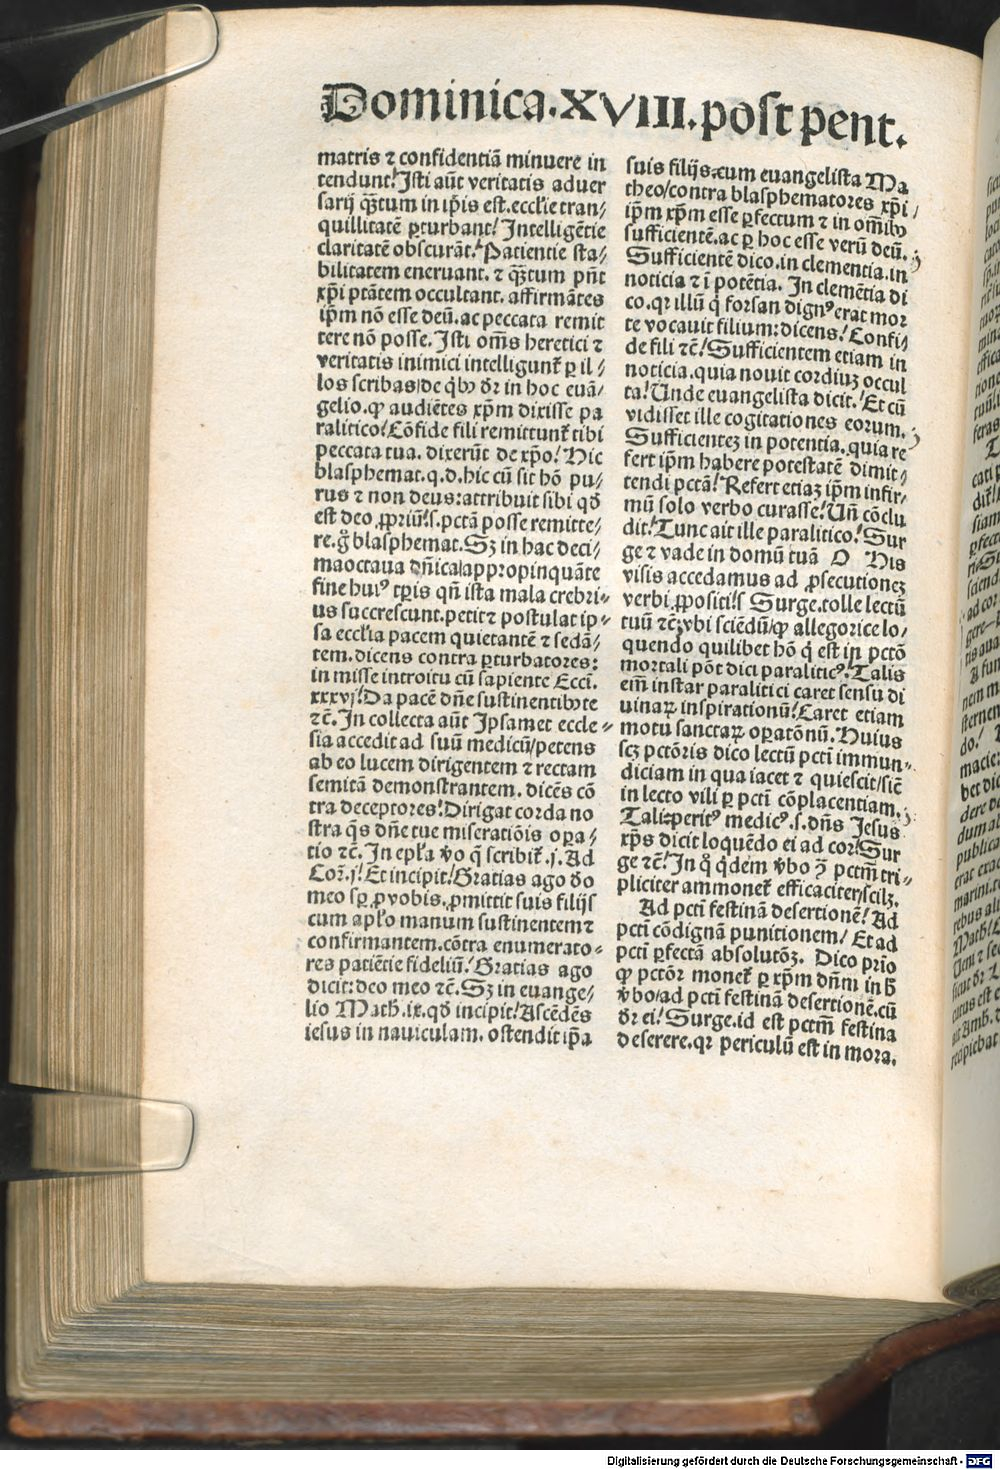 Dominica.XVIII.post pent.
matris ⁊ confidentiã minuere in
tendunt!Isti aũt veritatis aduer
sarij qꝫtum in ip̃is est.eccl'ie tran/
quillitatẽ ꝑturbant!Intelligẽtie
claritatẽ obscurãt.Patientie sta/
bilitatem eneruant.⁊ qꝫtum pñt
xp̃i ptãtem occultant.affirmãtes
ip̃m nõ esse deũ.ac peccata remit
tere nõ posse.Isti om̃s heretici ⁊
veritatis inimici intelligunt᷑ ꝑ il/
los scribas/de q̇bꝰ d̕r in hoc euã/
gelio.ꝙ audiẽtes xp̃m dixisse pa
ralitico!Cõfide fili remittunt᷑ tibi
peccata tua.dixerũt de xp̃o!Hic
blasphemat.q.d.hic cũ sit hõ pu/
rus ⁊ non deus:attribuit sibi qđ
est deo ꝓpriũ!s.pctã posse remitte/
re.g̊ blasphemat.Sꝫ in hac deci/
maoctaua dñica/appropinquãte
fine huiꝰ tp̃is qñ ista mala crebri/
us succrescunt.petit⁊ postulat ip/
sa eccl'ia pacem quietantẽ ⁊ sedã/
tem.dicens contra ꝑturbatores:
in misse introitu cũ sapiente Ecci̇.
xxxvj!Da pacẽ dñe sustinentibꝰte
⁊c̃.In collecta aũt Ipsamet eccle/
sia accedit ad suũ medicũ/petens
ab eo lucem dirigentem ⁊ rectam
semitã demonstrantem.dicẽs cõ
tra deceptores!Dirigat corda no
stra q̃s dñe tue miseratiõis oꝑa/
tio ⁊c̃.In epl'a ṽo q̃ scribit᷑.j.Ad
Coꝝ.j!Et incipit!Gratias ago do
meo sꝑ ꝓ vobis.ꝓmittit suis filijs
cum apl'o manum sustinentem⁊
confirmantem.cõtra enumerato/
res patiẽtie fideliũ!Gratias ago
dicit:deo meo ⁊c̃.Sꝫ in euange/
lio Math̃.ix.qđ incipit!Ascẽdẽs
iesus in nauiculam.ostendit ip̃a
suis filijs⁊cum euangelista Ma
theo/contra blasphematores xp̃i/
ip̃m xp̃m esse ꝑfectum ⁊ in om̃ibꝰ
sufficientẽ.ac ꝑ hoc esse verũ deũ.
Sufficientẽ dico.in clementia.in
noticia ⁊ ĩ potẽtia. In clemẽtia di
co.qꝛ illũ q̇ forsan dignꝰ erat mor
te vocauit filium:dicens!Confi/
de fili ⁊c̃!Sufficientem etiam in
noticia.quia nouit cordiuꝫ occul
ta!Unde euangelista dicit!Et cũ
vidisset ille cogitationes eorum.
Sufficienteꝫ in potentia.quia re
fert ip̃m habere potestatẽ dimit/
tendi pctã!Refert etiaꝫ ip̃m infir/
mũ solo verbo curasse!Uñ cõclu
dit!Tunc ait ille paralitico!Sur
ge ⁊ vade in domũ tuã O His
visis accedamus ad ꝓsecutioneꝫ
verbi ꝓpositi!s Surge.tolle lectũ
tuũ ⁊c̃.vbi sciẽdũ/ꝙ allegorice lo/
quendo quilibet hõ q̇ est in pctõ
mortali põt dici paraliticꝰ!Talis
em̃ instar paralitici caret sensu di
uinaꝝ inspirationũ!Caret etiam
motu sanctaꝝ oꝑatõnũ.Huius
scꝫ pctõris dico lectũ pcti̇ immun/
diciam in qua iacet ⁊ quiescit/sic̃
in lecto vili ꝑ pcti̇ cõplacentiam.
Tali⁊peritꝰ medicꝰ.s.dñs Jesus
xp̃s dicit loquẽdo ei ad cor!Sur
ge ⁊c̃!In q̊ q̇dem ṽbo ꝯ̃ pctm̃ tri/
pliciter ammonet᷑ efficaciter/scilꝫ.
Ad pcti̇ festinã desertionẽ!Ad
pcti̇ cõdignã punitionem/ Et ad
pcti̇ ꝑfectã absolutõꝫ. Dico prĩo
ꝙ pctõr monet᷑ ꝑ xp̃m dñm in h̃
ṽbo/ad pcti̇ festinã desertionẽ.cũ
d̕r ei!Surge.id est pctm̃ festina
deserere.qꝛ periculũ est in mora.
Digitalisierung gefördert durch die Deutsche Forschungsgemeinschaft - DFG